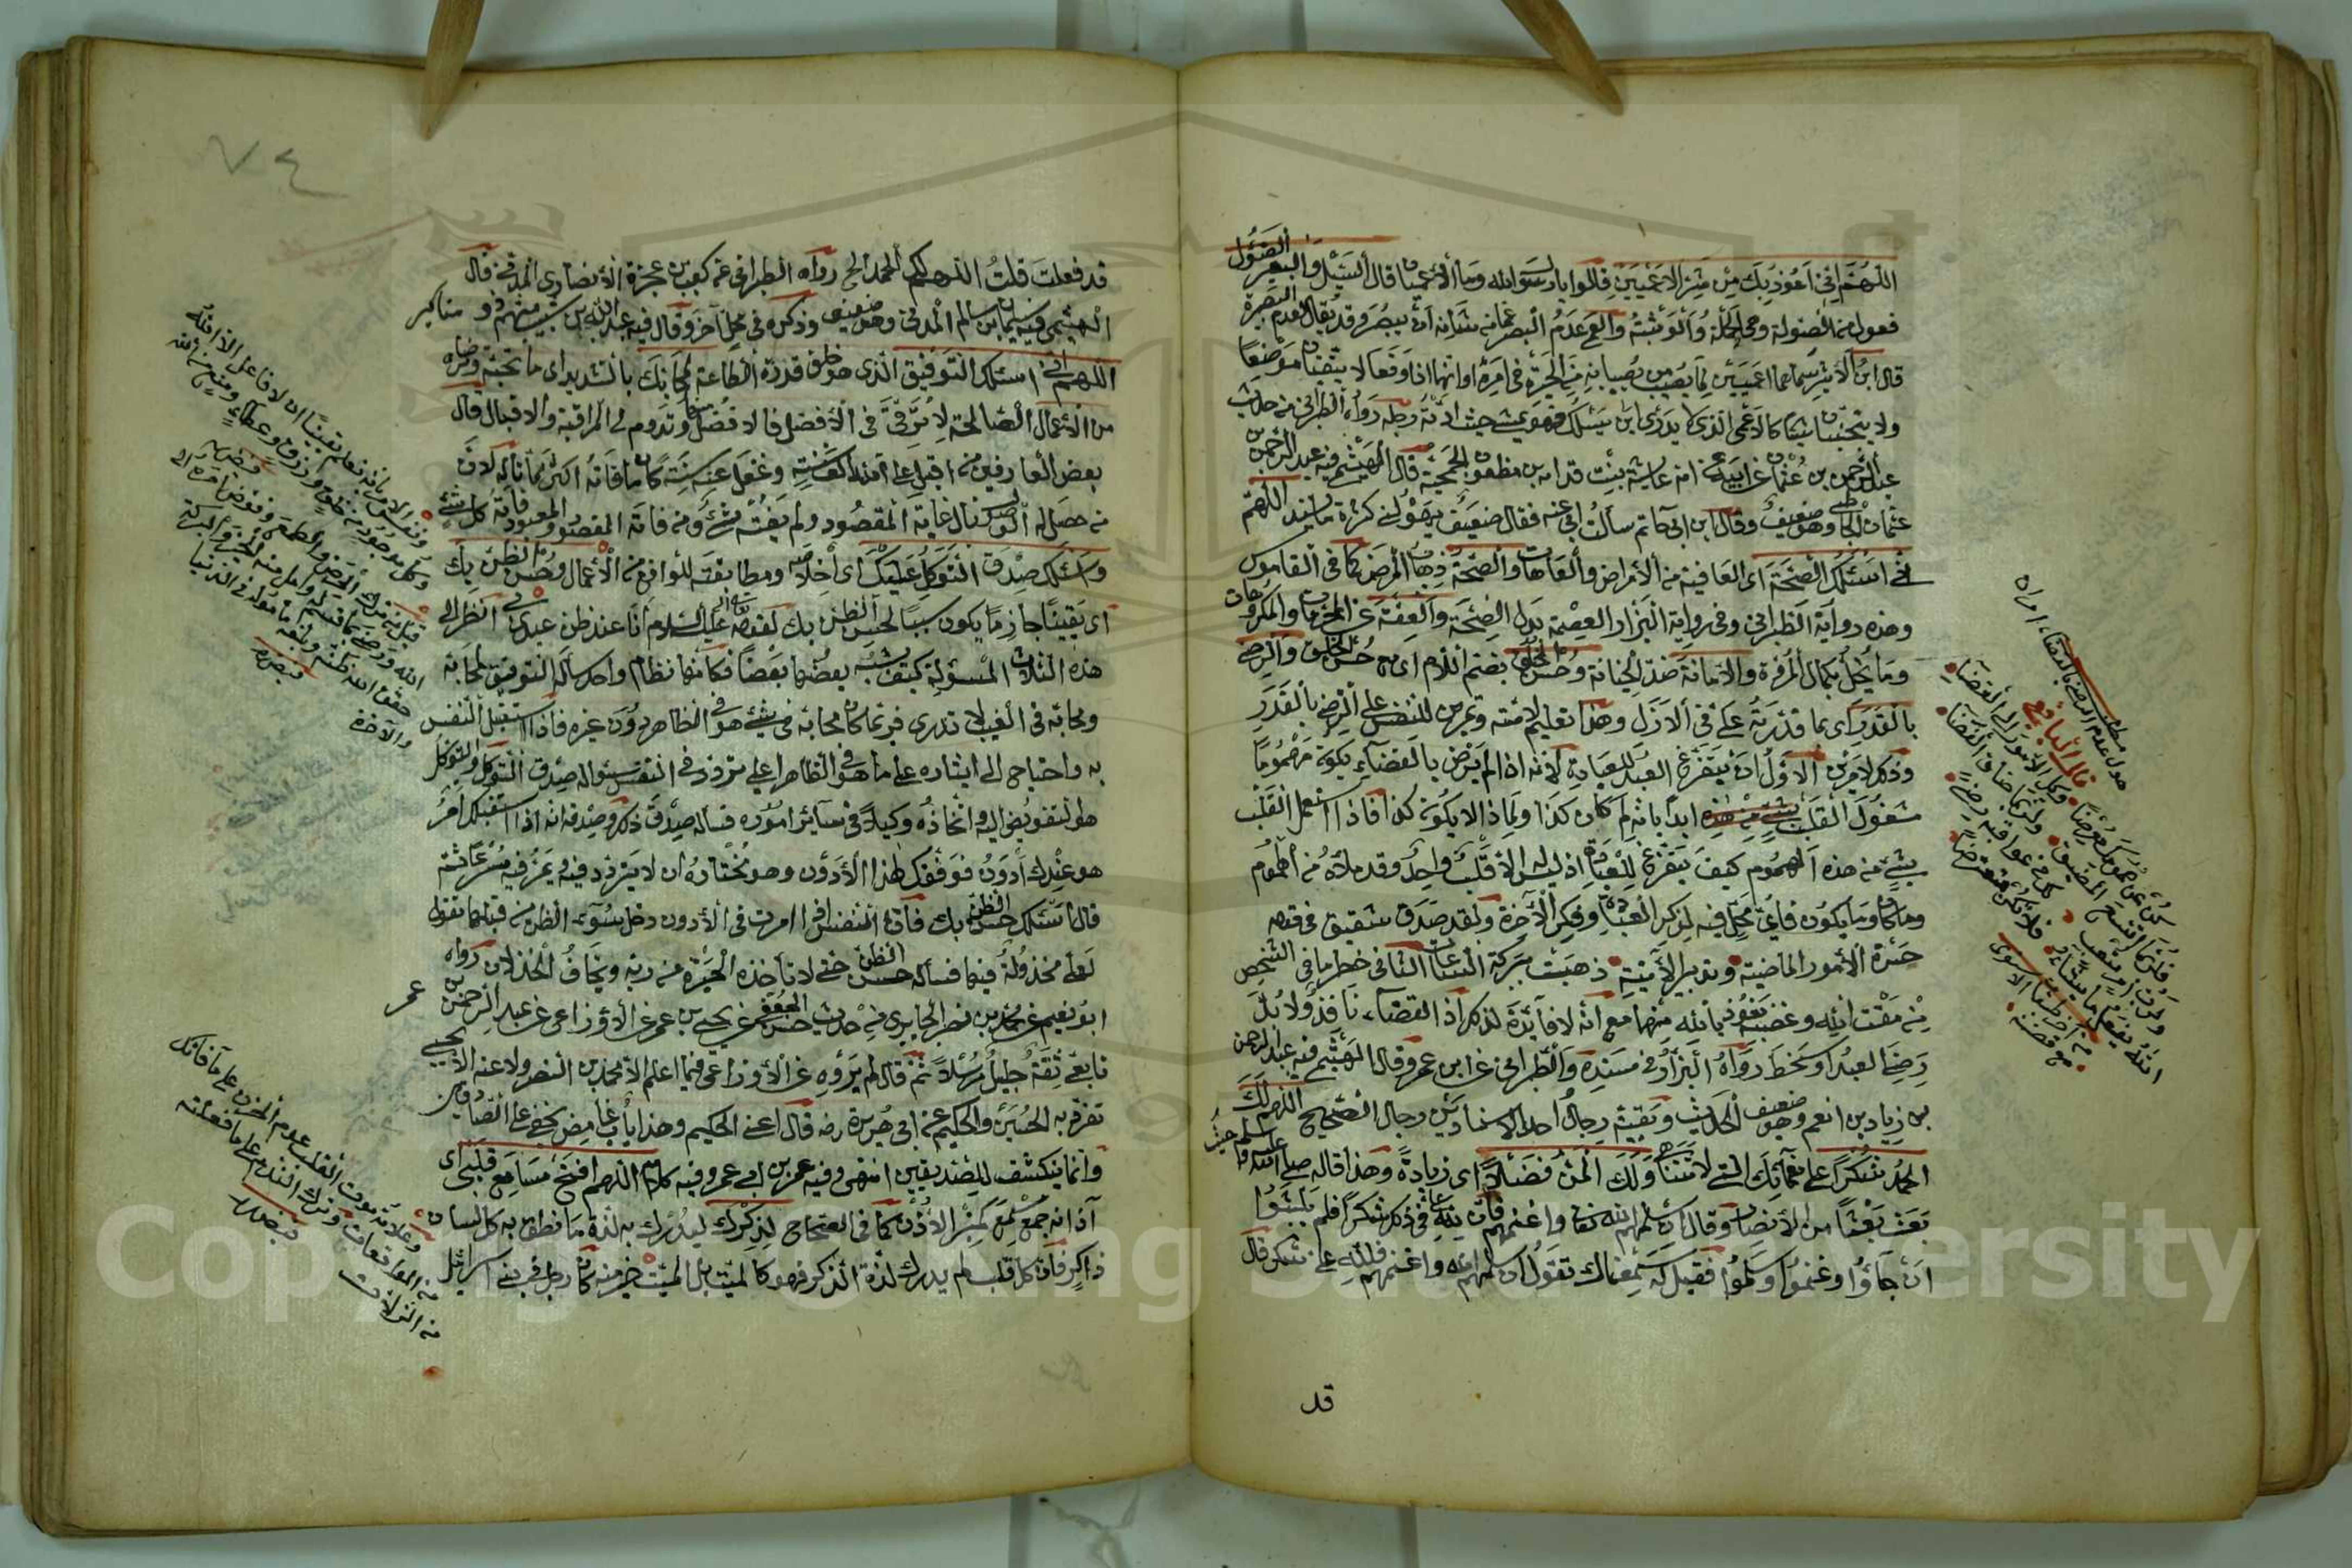 اللهم اني اعوذ بك من شر الاعميين قالوا يا رسول الله وما الاعميان قال السيل والبعير الصئول
فعول من الصولة وهي الحملة والوثبة والعمى عدم البصر عما من شانه ان يبصر وقد يقال لعدم البصيرة
قال ابن الاثير سماهما اعميين لما يصيب من يصيبانه من الحيرة في امره او انهما اذا وقعا لا يتقيان موضعا
ولا يتجنبان شيئا كالاعمى الذي لا يدري اين يسلك فهو يمشي حيث ادته رجله رواه الطبراني من حديث
عبد الرحمن بن عثمان عن ابيه عن امه عايشة بنت قدامة بن مظعون الجمحية قال الهيثمي فيه عبد الرحمن
عثمان الحاطبي وهو ضعيف وقال ابن ابي حاتم سالت ابي عنه فقال ضعيف يهولني كثرة ما يسند اللهم
اني اسئلك الصحة اى العافية من الأمراض والعاهات والصحة ذهاب المرض كما في القاموس
وهذه رواية الطبراني وفي رواية البزار العصمة بدل الصحة والعفة عن المحرمات والمكروهات
وما يخل بكمال المروة والامانة ضد الخيانة وحسن الخلق بضم اللام اى مع حسن الخلق والرضى
بالقدر اى بما قدرته علي في الازل وهذا تعليم لامته وتمرين للنفس على الرضى بالقدر
وذكر لامرين الاول ان يتفرغ العبد للعبادة لانه اذا لم يرض بالقضاء يكون مهموما
مشغول القلب ابدا بانه لم كان كذا ولماذا لا يكون كذا فاذا اشتغل القلب
بشيء من هذه الهموم كيف يتفرغ للعبادة اذ ليس له الا قلب واحد وقد ملاه من الهموم
وما كان وما يكون فاي محل فيه لذكر العبادة وفكر الآخرة ولقد صدق شقيق في قوله
حسرة الأمور الماضية وتدبير الآتية ذهبت ببركة الساعات الثاني خطر ما في الشخص
من مقت الله وغضبه نعوذ بالله منهما مع انه لا فائدة لذلك اذ القضاء نافذ ولا بد
رضي العبد او سخط رواه البزار في مسنده والطبراني عن ابن عمرو قال الهيثمي فيه عبد الرحمن
بن زياد بن انعم وهو ضعيف الحديث وبقية رجال احد الاسنادين رجال الصحيح اللهم لك
الحمد شكرا على نعمائك التي لا تتناهى ولك المن فضلا اى زيادة وهذا قاله صلى الله عليه وسلم حيث
بعث بعثا من الأنصار وقال ان سلمهم الله تعالى واغنمهم فان لله علي في ذلك شكرا فلم يلبثوا
ان جاؤا وغنموا وسلموا فقيل له سمعناك تقول ان سلمهم الله واغنمهم فلله علي شكر قال
قد
مطلب
هول عدم الرضى بالقضاء امران
قال اليافعي
كن عن همومك معرضا وكل الأمور الى القضاء
فلربما اتسع المضيق ولربما ضاق الفضاء
ولرب امر متعب لك في عواقبه رضى
الله يفعل ما يشاء فلا تكن متعرضا
٧٤
قد فعلت قلت اللهم لك الحمد الخ رواه الطبراني عن كعب بن عجرة الأنصاري المدني قال
الهيثمي فيه سليمان بن سالم المدني وهو ضعيف وذكره في محل آخر وقال فيه عبد الله بن شبيب متهم ذو مناكير
اللهم اني اسئلك التوفيق الذي هو خلق قدرة الطاعة لمحابك بالتشديد اى ما تحبه وترضاه
من الأعمال الصالحة لاترقى في الأفضل فالأفضل منها وتدوم لي المراقبة والاقبال قال
بعض العارفين من اقبل على الله كذا سنة وغفل عنه سنة كان ما فاته اكثر مما ناله لان
من حصل له الوصل نال غاية المقصود ولم يفته شيء ومن فاته المقصود والمعبود فاته كل شيء
واسئلك صدق التوكل عليك اى اخلاصه ومطابقته للواقع من الأعمال وحسن الظن بك
اى يقينا جازما يكون سببا لحسن الظن بك لقوله عليه السلام انا عند ظن عبدي بي انظر الى
هذه الثلاث المسئولة كيف يشبه بعضها بعضا فكانها نظام واحد ساله التوفيق لمحابه
ومحابه في الغيب لا تدرى فربما كان محابه في شيء هو في الظاهر دون غيره فاذا استقبل النفس
به واحتياج الى ايثاره على ما هو في الظاهر اعلى تردد في النفس سؤاله صدق التوكل والتوكل
هو التفويض اليه واتخاذه وكيلا في سائر اموره فساله صدق ذلك وصدقه انه اذا استقبلك امر
هو عندك أدون فوفقك لهذا الأدون وهو مختاره ان لا يتردد فيه
قال اسئلك حسن الظن بك فان النفس اذا امرت في الأدون دخل سوء الظن من قبلها تقول
لعلي مخذولة فيها فساله حسن الظن حتى لا تاخذه الحيرة من ربه ويخاف الخذلان رواه
ابو نعيم عن محمد بن نصر الحارثي من حديث حسن الجعفي عن يحيى بن عمر عن الأوزاعي عن عبد الرحمن بن عمر
تابعي ثقة جليل مرسلا ثم قال لم يروه عن الأوزاعي فيما اعلم الا محمد بن النضر ولا عنه الا يحيى
تفرد به الحسين والحكيم عن ابي هريرة رضه قال اعني الحكيم وهذا باب غامض يخفى على الصادقين
وانما ينكشف للصديقين انتهى وفيه عمر بن ابي عمرو فيه كلام اللهم افتح مسامع قلبي اى
آذانه جمع مسمع كمنبر الاذن كما في الصحاح لذكرك ليدرك به لذة ما نطق به كل لسان
ذاكر فان كل قلب لم يدرك لذة الذكر فهو كالميت بل الميت خير منه كان رجل في بني اسرائيل
وعلامة موت القلب عدم الحزن على ما فاتك
من الموافقات وترك الندم على ما فعلته
من الزلات